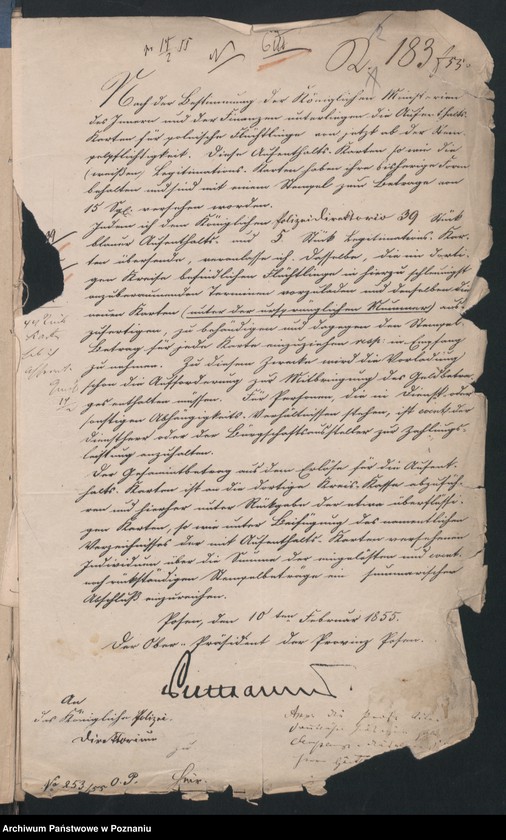 183/55.
Nach der Bestimmung der Königlichen Ministerien
des Innern und der Finanzen unterliegen die Aufenthalts-
Karten für polnische Flüchtlinge von jetzt ab der Stem-
pelpflichtigkeit. Diese Aufenthalts-Karten so wie die
(weißen) Legitimations-Karten haben ihre bisherige Form
behalten und sind mit einem Stempel zum Betrage von
15 Sgr. versehen worden.
Indem ich dem Königlichen Polizeidirektorio 39 Stück
blaue Aufenthalts- und 5 Stück Legitimations-Kar-
ten übersende, veranlasse ich dasselbe, die im dorti-
gen Kreise befindlichen Flüchtlinge in hierzu schleunigst
anzuberaumenden Terminen vorzuladen und denselben die
neuen Karten (unter der ursprünglichen Nummer) aus-
zufertigen, zu behändigen und dagegen den Stempel-
Betrag für jede Karte einzuziehen resp. in Empfang
zu nehmen. Zu diesem Zwecke wird die Vorladung
schon die Aufforderung zur Mitbringung des Geldbetra-
ges enthalten müssen. Für Personen, die in Dienst- oder
sonstigen Abhängigkeits-Verhältnissen stehen, ist event. der
Dienstherr oder der Bürgschaftsaussteller zur Zahlungs-
leistung anzuhalten.
Der Gesammtbetrag aus dem Erlöse für die Aufent-
halts-Karten ist an die dortige Kreis-Kasse abzufüh-
ren und hierher unter Rückgabe der etwa überflüssi-
gen Karten, so wie unter Beifügung des namentlichen
Verzeichnisses der mit Aufenthalts-Karten versehenen
Individuen über die Summe der eingelösten und event.
noch rückständigen Stempelbeträge ein summarischer
Abschluß einzureichen.
Posen, den 10ten Februar 1855.
Der Ober-Präsident der Provinz Posen.
An
das Königliche Polizei-
Direktorium
zu
hier.
No 253/55 O. P.
Archiwum Państwowe w Poznaniu